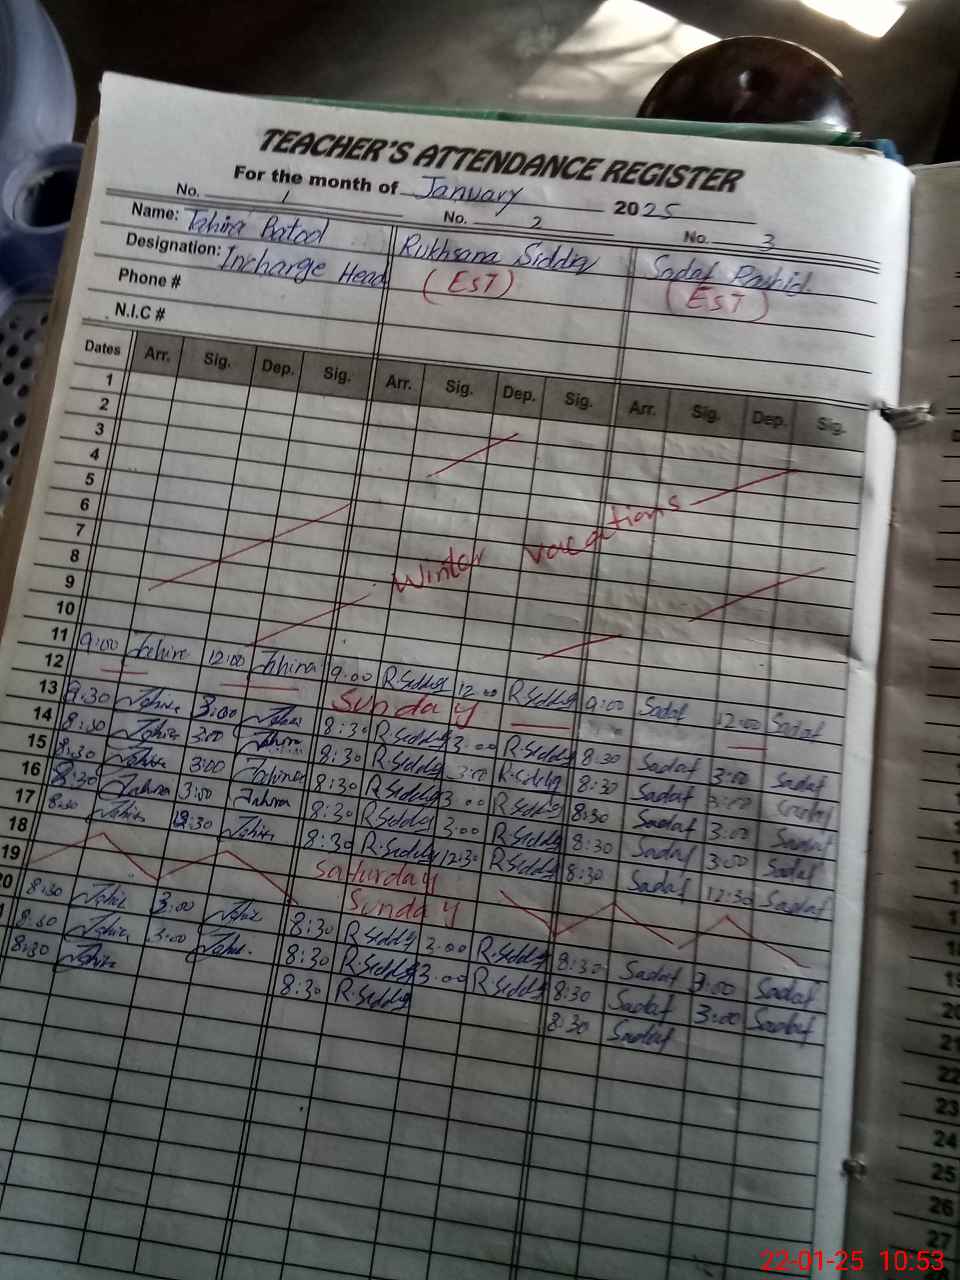 TEACHER'S ATTENDANCE REGISTER
For the month of January 2025
No. 1 No. 2 No. 3
Name: Tahira Batool Rukhsana Siddiq Sadaf Rashid
Designation: Incharge Head (EST) (EST)
Phone #
N.I.C #
Dates Arr. Sig. Dep. Sig. Arr. Sig. Dep. Sig. Arr. Sig. Dep. Sig.
1
2
3
4
5
6
7
8
9
10
Winter vacations
11 9:00 Tahira 12:00 Tahira 9.00 R.Siddiq 12.00 R.Siddiq 9:00 Sadaf 12:00 Sadaf
12 Sunday
13 9.30 Tahira 3:00 Tahira 8:30 R.Siddiq 3.00 R.Siddiq 8:30 Sadaf 3:00 Sadaf
14 8:30 Tahira 3:00 Tahira 8:30 R.Siddiq 3:00 R.Siddiq 8:30 Sadaf 3:00 Sadaf
15 8:30 Tahira 3:00 Tahira 8:30 R.Siddiq 3.00 R.Siddiq 8:30 Sadaf 3:00 Sadaf
16 8:30 Tahira 3:00 Tahira 8:30 R.Siddiq 3.00 R.Siddiq 8:30 Sadaf 3:00 Sadaf
17 8:30 Tahira 12:30 Tahira 8:30 R.Siddiq 12:30 R.Siddiq 8:30 Sadaf 12:30 Sadaf
18 Saturday
19 Sunday
20 8:30 Tahira 3:00 Tahira 8:30 R.Siddiq 3.00 R.Siddiq 8:30 Sadaf 3:00 Sadaf
8:30 Tahira 3:00 Tahira 8:30 R.Siddiq 3.00 R.Siddiq 8:30 Sadaf 3:00 Sadaf
8:30 Tahira 8:30 R.Siddiq 8:30 Sadaf
18
19
20
21
22
23
24
25
26
27
22-01-25 10:53